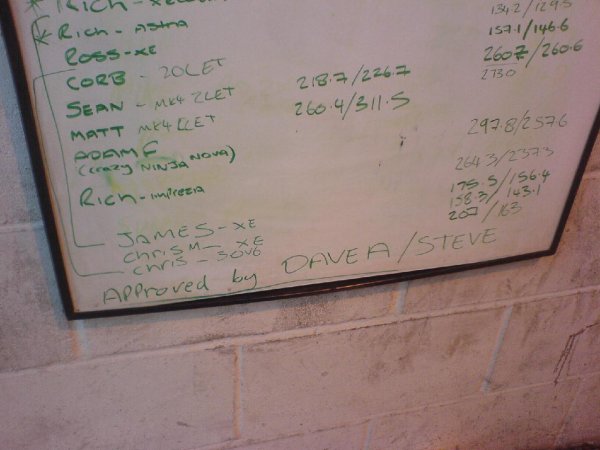 * Rich -
* Rich - Astra 157.1/146.6
ROSS - XE 260.7/260.6
CORB - 20LET 218.7/226.7 273.0
SEAN - MK4 2LET 260.4/311.5
MATT MK4 LET 297.8/257.6
ADAM F
(crazy NINJA NOVA) 264.3/237.3
Rich - imprezia 175.5/156.4
158.3/143.1
JAMES - XE 207/163
CHRIS M - XE
CHRIS - 30V6
APPROVED by DAVE A/STEVE